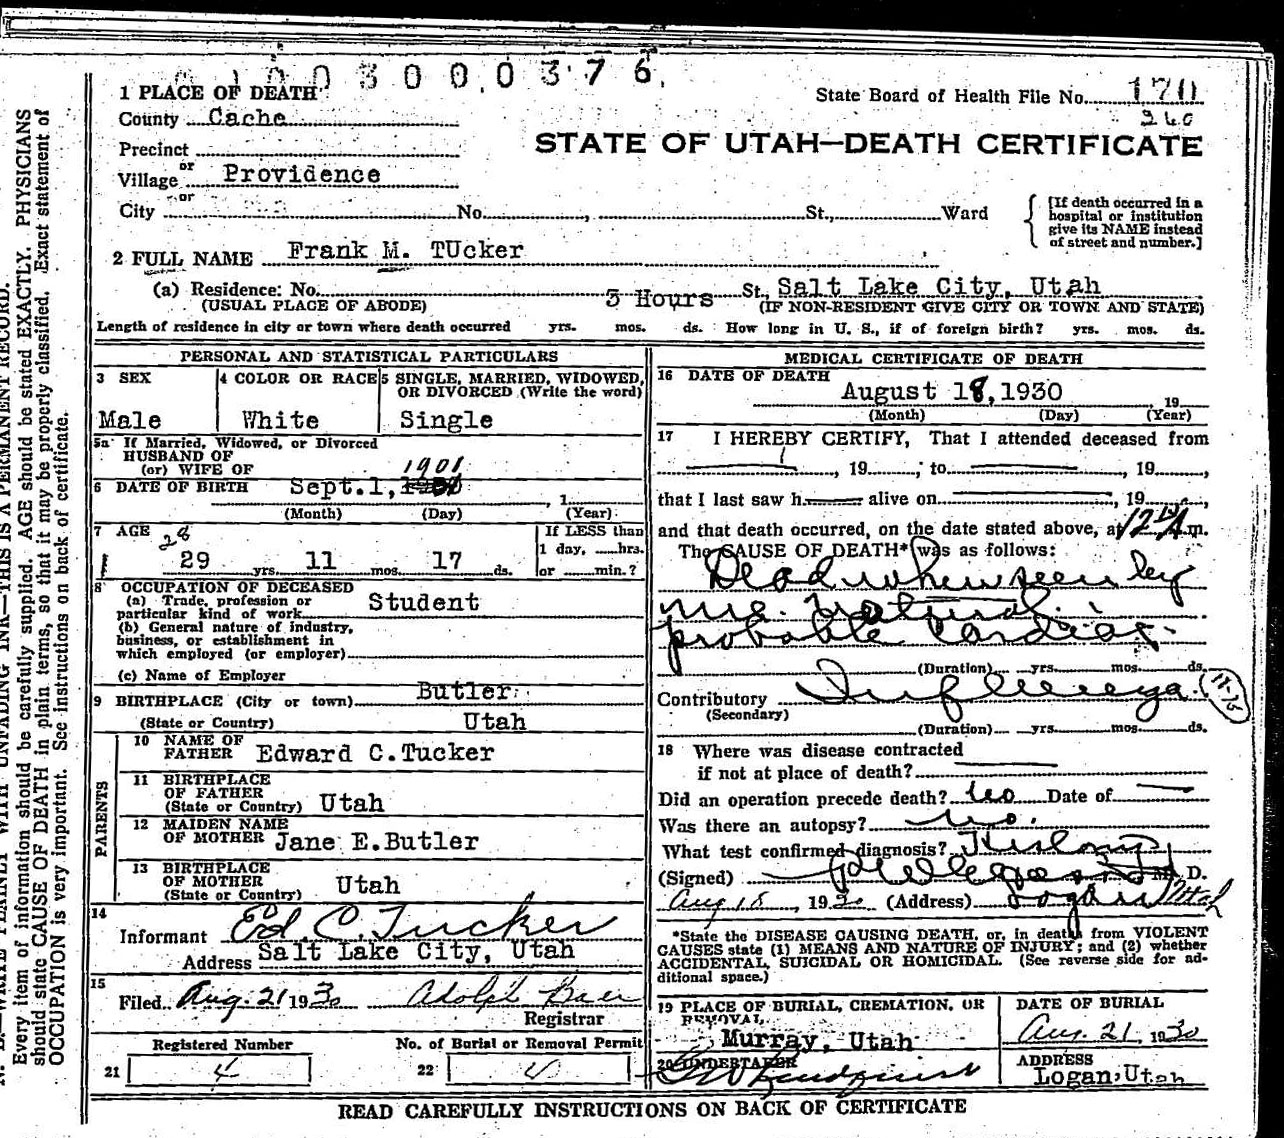 0 1 0 0 3 0 0 0 0 3 7 6
1 PLACE OF DEATH
State Board of Health File No. 170
260
County Cache
STATE OF UTAH—DEATH CERTIFICATE
Precinct
or
Village Providence
or
City No. , St., Ward
[If death occurred in a
hospital or institution
give its NAME instead
of street and number.]
2 FULL NAME Frank M. TUcker
(a) Residence: No. St., Salt Lake City, Utah
(USUAL PLACE OF ABODE) 3 Hours (IF NON-RESIDENT GIVE CITY OR TOWN AND STATE)
Length of residence in city or town where death occurred yrs. mos. ds. How long in U. S., if of foreign birth? yrs. mos. ds.
PERSONAL AND STATISTICAL PARTICULARS
3 SEX 4 COLOR OR RACE 5 SINGLE, MARRIED, WIDOWED,
OR DIVORCED (Write the word)
Male White Single
5a If Married, Widowed, or Divorced
HUSBAND OF
(or) WIFE OF
1901
6 DATE OF BIRTH Sept. 1, , 1
(Month) (Day) (Year)
7 AGE If LESS than
28 1 day, hrs.
29 yrs. 11 mos. 17 ds. or min.?
8 OCCUPATION OF DECEASED
(a) Trade, profession or
particular kind of work Student
(b) General nature of industry,
business, or establishment in
which employed (or employer)
(c) Name of Employer
9 BIRTHPLACE (City or town) Butler
(State or Country) Utah
PARENTS
10 NAME OF
FATHER Edward C. Tucker
11 BIRTHPLACE
OF FATHER
(State or Country) Utah
12 MAIDEN NAME
OF MOTHER Jane E. Butler
13 BIRTHPLACE
OF MOTHER
(State or Country) Utah
14
Informant Ed C. Tucker
Address Salt Lake City, Utah
15
Filed Aug. 21 1930 Adolph Baer
Registrar
Registered Number No. of Burial or Removal Permit
21 4 22 4
MEDICAL CERTIFICATE OF DEATH
16 DATE OF DEATH
August 18, 1930 19
(Month) (Day) (Year)
17 I HEREBY CERTIFY, That I attended deceased from
, 19 , to , 19 ,
that I last saw h alive on , 19 ,
and that death occurred, on the date stated above, at 12 A m.
The CAUSE OF DEATH* was as follows:
Dead when seen by
me. Natural.
probable cardiac.
(Duration) yrs. mos. ds.
Contributory Influenza. 11-75
(Secondary)
(Duration) yrs. mos. ds.
18 Where was disease contracted
if not at place of death?
Did an operation precede death? no Date of
Was there an autopsy? no.
What test confirmed diagnosis? History
(Signed) M. D.
Aug 18, 1930 (Address) Logan Utah
*State the DISEASE CAUSING DEATH, or, in deaths from VIOLENT
CAUSES state (1) MEANS AND NATURE OF INJURY; and (2) whether
ACCIDENTAL, SUICIDAL OR HOMICIDAL. (See reverse side for ad-
ditional space.)
19 PLACE OF BURIAL, CREMATION, OR
REMOVAL
Murray, Utah
DATE OF BURIAL
Aug. 21, 1930
20 UNDERTAKER
ADDRESS
Logan, Utah
READ CAREFULLY INSTRUCTIONS ON BACK OF CERTIFICATE
WRITE PLAINLY WITH UNFADING INK—THIS IS A PERMANENT RECORD.
Every item of information should be carefully supplied. AGE should be stated EXACTLY. PHYSICIANS
should state CAUSE OF DEATH in plain terms, so that it may be properly classified. Exact statement of
OCCUPATION is very important. See instructions on back of certificate.